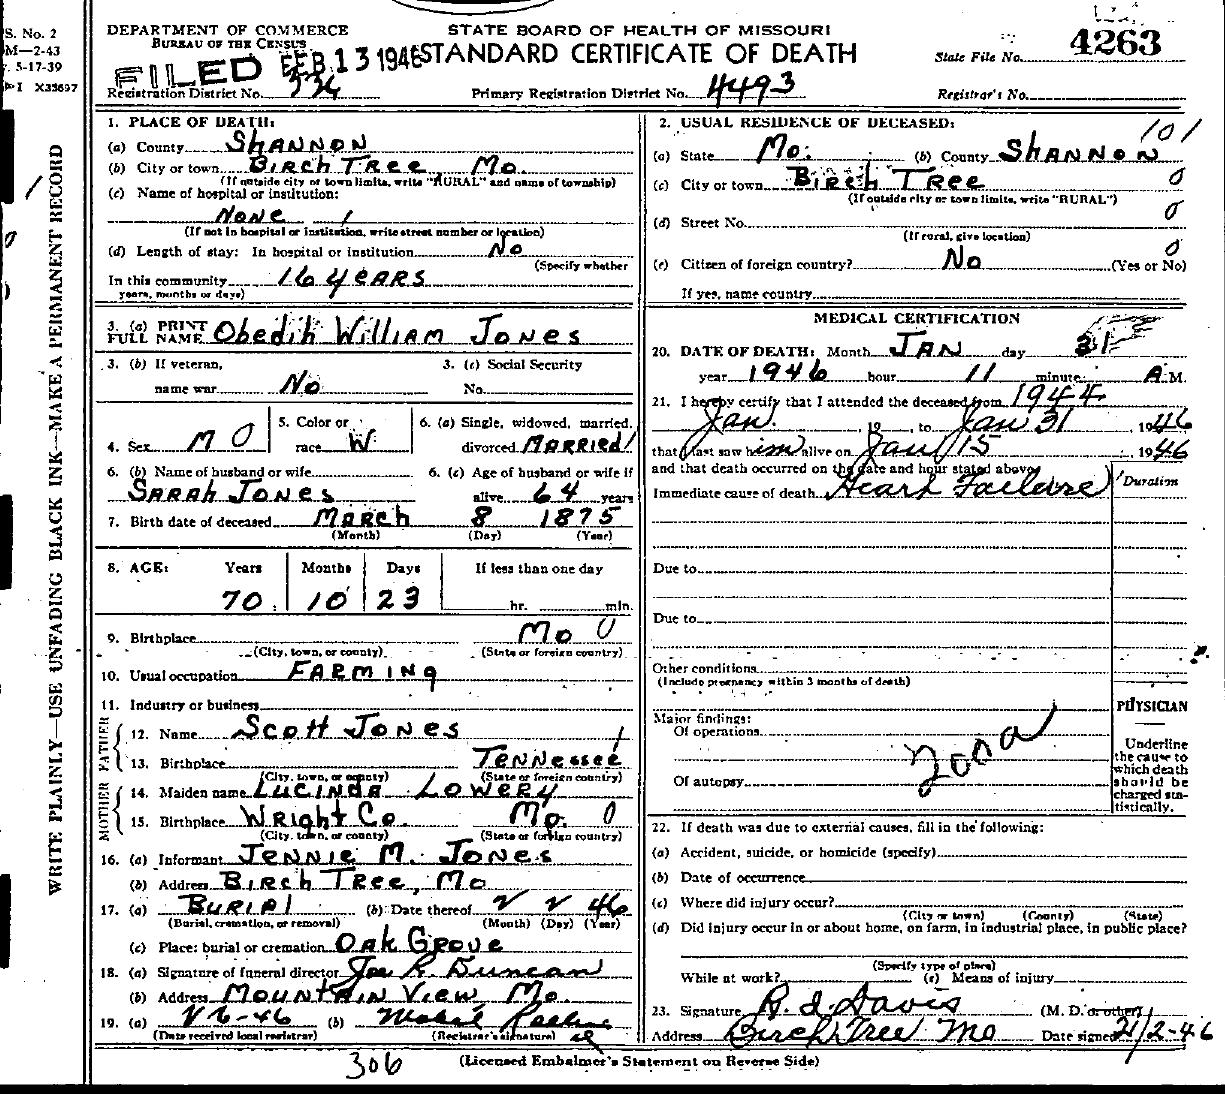 S. No. 2
M—2-43
5-17-39
I X35697
WRITE PLAINLY—USE UNFADING BLACK INK—MAKE A PERMANENT RECORD
DEPARTMENT OF COMMERCE
BUREAU OF THE CENSUS
FILED FEB 13 1946
STATE BOARD OF HEALTH OF MISSOURI
STANDARD CERTIFICATE OF DEATH
State File No. 4263
Registration District No. 336
Primary Registration District No. 4493
Registrar's No.
1. PLACE OF DEATH:
(a) County SHANNON
(b) City or town BIRCH TREE MO.
(If outside city or town limits, write "RURAL" and name of township)
(c) Name of hospital or institution:
NONE 1
(If not in hospital or institution, write street number or location)
(d) Length of stay: In hospital or institution No
(Specify whether
In this community 16 YEARS
years, months or days)
3. (a) PRINT FULL NAME Obedih William Jones
3. (b) If veteran,
name war No
3. (c) Social Security
No.
4. Sex M 0
5. Color or
race W
6. (a) Single, widowed, married,
divorced MARRIED 1
6. (b) Name of husband or wife
SARAH JONES
6. (c) Age of husband or wife if
alive 64 years
7. Birth date of deceased MARCH 8 1875
(Month) (Day) (Year)
8. AGE: Years Months Days If less than one day
70 10 23 hr. min.
9. Birthplace Mo 0
(City, town, or county) (State or foreign country)
10. Usual occupation FARMING
11. Industry or business
FATHER
12. Name SCOTT JONES
13. Birthplace TENNESSEE 1
(City, town, or county) (State or foreign country)
MOTHER
14. Maiden name LUCINDA LOWERY
15. Birthplace WRIGHT CO. MO. 0
(City, town, or county) (State or foreign country)
16. (a) Informant JENNIE M. JONES
(b) Address BIRCH TREE, MO
17. (a) BURIAL (b) Date thereof 2 2 46
(Burial, cremation, or removal) (Month) (Day) (Year)
(c) Place: burial or cremation OAK GROVE
18. (a) Signature of funeral director Joe R. Duncan
(b) Address MOUNTAIN VIEW MO.
19. (a) 2-6-46 (b)
(Date received local registrar) (Registrar's signature)
306
(Licensed Embalmer's Statement on Reverse Side)
2. USUAL RESIDENCE OF DECEASED:
101
(a) State Mo. (b) County SHANNON
(c) City or town BIRCH TREE 0
(If outside city or town limits, write "RURAL")
(d) Street No. 0
(If rural, give location)
(e) Citizen of foreign country? No 0 (Yes or No)
If yes, name country
MEDICAL CERTIFICATION
20. DATE OF DEATH: Month JAN day 31
year 1946 hour 11 minute A.M.
21. I hereby certify that I attended the deceased from 1944
Jan. 19 , to Jan 31 , 1946
that I last saw him alive on Jan 15 1946
and that death occurred on the date and hour stated above.
Immediate cause of death Heart Failure
Duration
Due to
Due to
Other conditions
(Include pregnancy within 3 months of death)
Major findings:
Of operations
Of autopsy
PHYSICIAN
Underline
the cause to
which death
should be
charged sta-
tistically.
22. If death was due to external causes, fill in the following:
(a) Accident, suicide, or homicide (specify)
(b) Date of occurrence
(c) Where did injury occur?
(City or town) (County) (State)
(d) Did injury occur in or about home, on farm, in industrial place, in public place?
(Specify type of place)
While at work? (e) Means of injury
23. Signature R. I. Davis (M. D. or other)
Address Birch Tree Mo Date signed 2/2-46